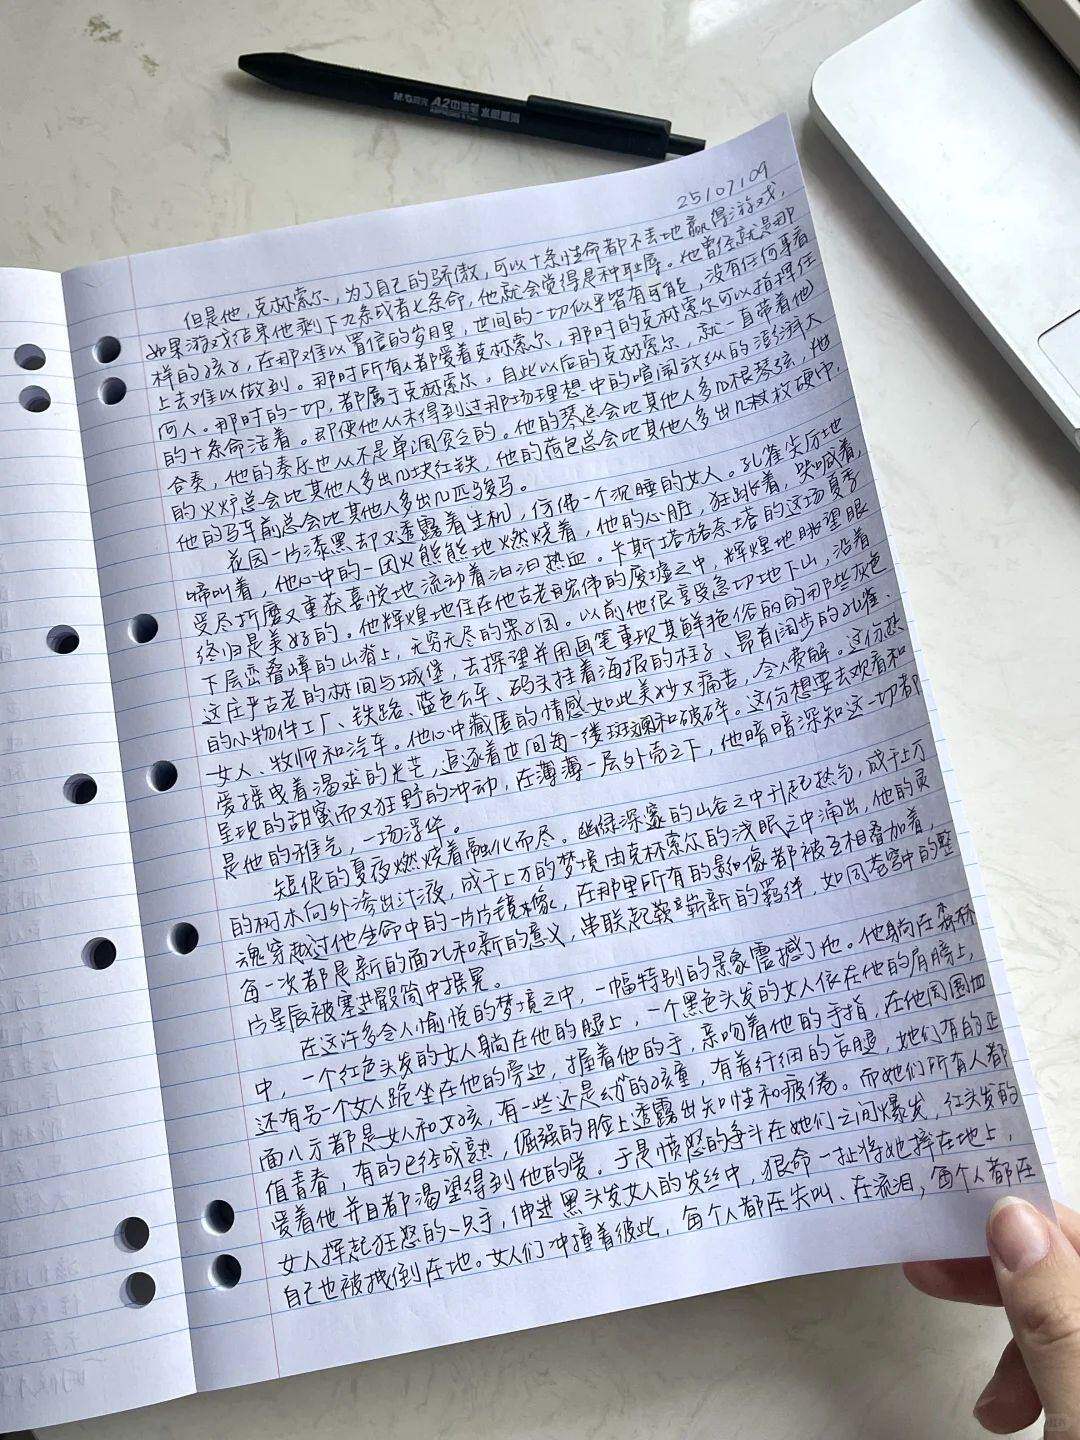 M&G晨光 A2中油笔 水感顺滑
25107109
但是他，克林索尔，为了自己的骄傲，可以十条性命都不丢地赢得游戏，
如果游戏结束他剩下九条或者七条命，他就会觉得是种耻辱。他曾经就是那
样的孩子，在那难以置信的岁月里，世间的一切似乎皆有可能，没有任何事看
上去难以做到。那时所有人都爱着克林索尔，那时的克林索尔可以指挥任
何人。那时的一切，都属于克林索尔。自此以后的克林索尔，就一直带着他
的十条命活着。即便他从未得到过那场理想中的喧闹放纵的澎湃大
合奏，他的奏乐也从不是单调贫乏的。他的琴总会比其他人多几根琴弦，他
的火炉总会比其他人多出几块红铁，他的荷包总会比其他人多出几枚枚硬币，
他的马车前总会比其他人多出几匹骏马。
花园一片漆黑却又透露着生机，仿佛一个沉睡的女人。孔雀尖厉地
啼叫着，他心中的一团火熊熊地燃烧着，他的心脏，狂跳着，哭喊着，
受尽折磨又重获喜悦地流动着汩汩热血。卡斯塔格奈塔的这场夏季
终归是美好的。他辉煌地住在他古老宏伟的废墟之中，辉煌地眺望眼
下层峦叠嶂的山脊上，无穷无尽的果子园。以前他很享受急切地下山，沿着
这庄严古老的树间与城堡，去探望并用画笔重现其鲜艳俗丽的那些灰色
的小物件工厂、铁路、蓝色公车、码头挂着海报的柱子、昂首阔步的孔雀、
女人、牧师和汽车。他心中藏匿的情感如此美妙又痛苦，令人费解。这份热
爱摇曳着渴求的光芒，追逐着世间每一缕斑斓和破碎。这份想要去观看和
呈现的甜蜜而又狂野的冲动，在薄薄一层外壳之下，他暗暗深知这一切都
是他的稚气，一场浮华。
短促的夏夜燃烧着融化而尽。幽绿深邃的山谷之中升起热气，成千上万
的树木向外渗出汁液，成千上万的梦境由克林索尔的浅眠之中涌出，他的灵
魂穿越过他生命中的一片片镜像，在那里所有的影像都被互相叠加着，
每一次都是新的面孔和新的意义，串联起崭新的羁绊，如同苍穹中的整
片星辰被塞进骰筒中摇晃。
在这许多令人愉悦的梦境之中，一幅特别的景象震撼了他。他躺在森林
中，一个红色头发的女人躺在他的腿上，一个黑色头发的女人依在他的肩膀上，
还有另一个女人跪坐在他的旁边，握着他的手，亲吻着他的手指，在他周围四
面八方都是女人和女孩，有一些还是幼的孩童，有着纤细的长腿，她们有的正
值青春，有的已经成熟，倔强的脸上透露出知性和疲倦。而她们所有人都
爱着他并且都渴望得到他的爱。于是愤怒的争斗在她们之间爆发，红头发的
女人挥起狂怒的一只手，伸进黑头发女人的发丝中，狠命一扯将她摔在地上，
自己也被拽倒在地。女人们冲撞着彼此，每个人都在尖叫、在流泪，每个人都在